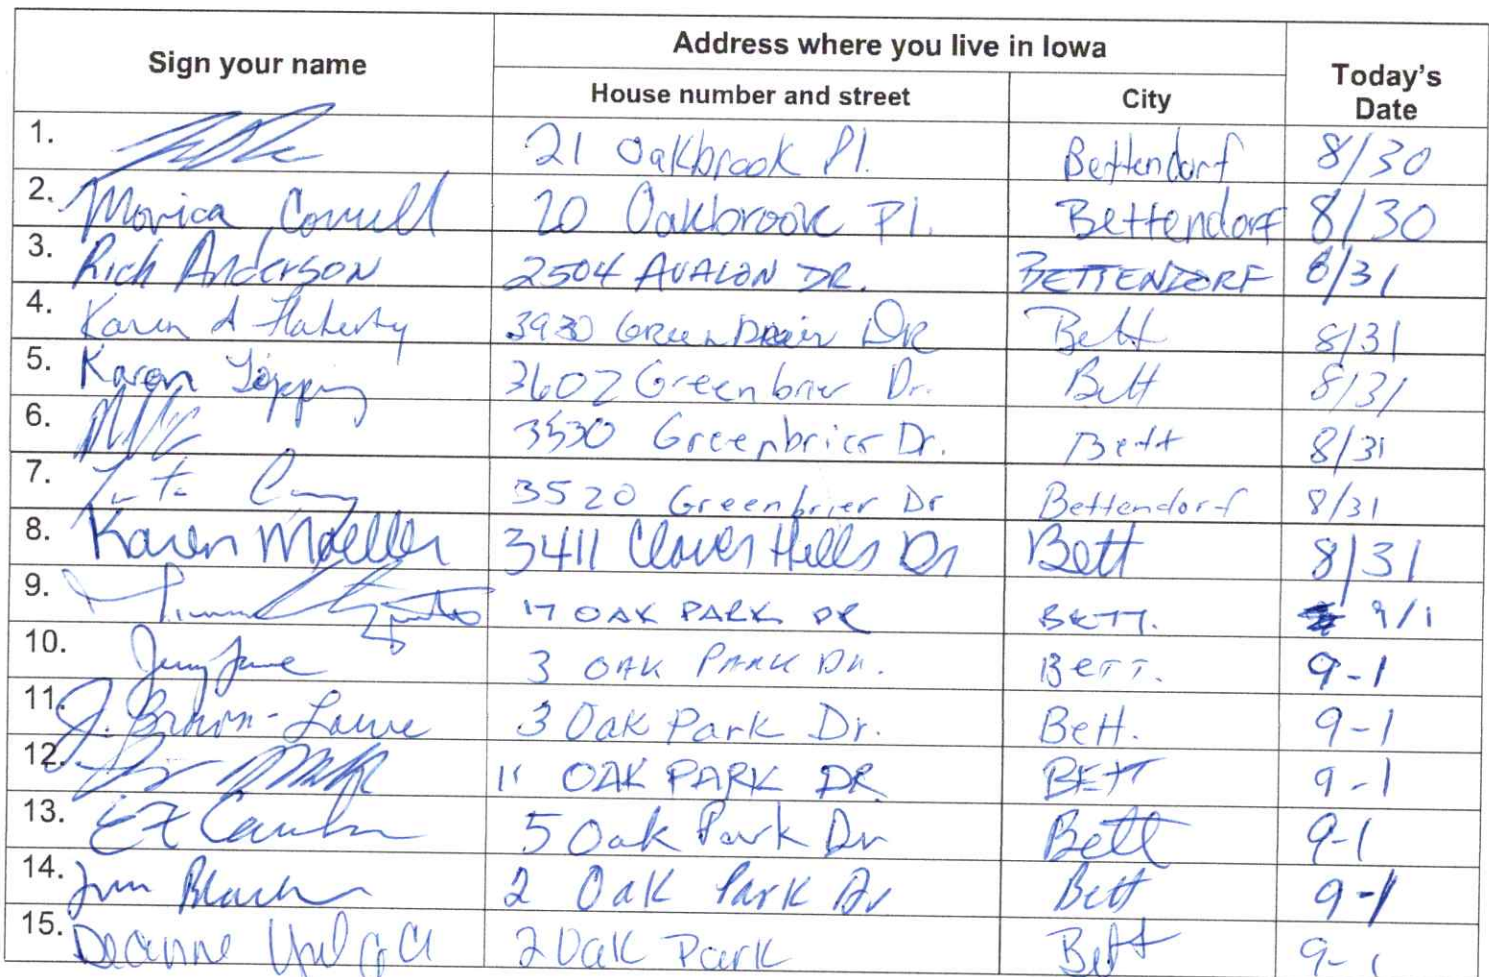 Sign your name
Address where you live in Iowa
House number and street
City
Today's Date
1. 21 Oakbrook Pl. Bettendorf 8/30
2. Monica 20 Oakbrook Pl. Bettendorf 8/30
3. Rich Anderson 2504 AVALON DR. BETTENDORF 8/31
4. Karen A Flaherty 3930 Greenbrier DR Bett 8/31
5. Karen Topping 3602 Greenbrier Dr. Bett 8/31
6. 3530 Greenbrier Dr. Bett 8/31
7. 3520 Greenbrier Dr Bettendorf 8/31
8. Karen Moeller 3411 Clover Hills Dr Bett 8/31
9. 17 OAK PARK DR BETT. 9/1
10. 3 OAK PARK DR. BETT. 9-1
11. J. Brown-Lowe 3 Oak Park Dr. Bett. 9-1
12. 11 OAK PARK DR BETT 9-1
13. 5 Oak Park Dr Bett 9-1
14. Jim 2 Oak Park Dr Bett 9-1
15. Deanne 2 Oak Park Bett 9-1